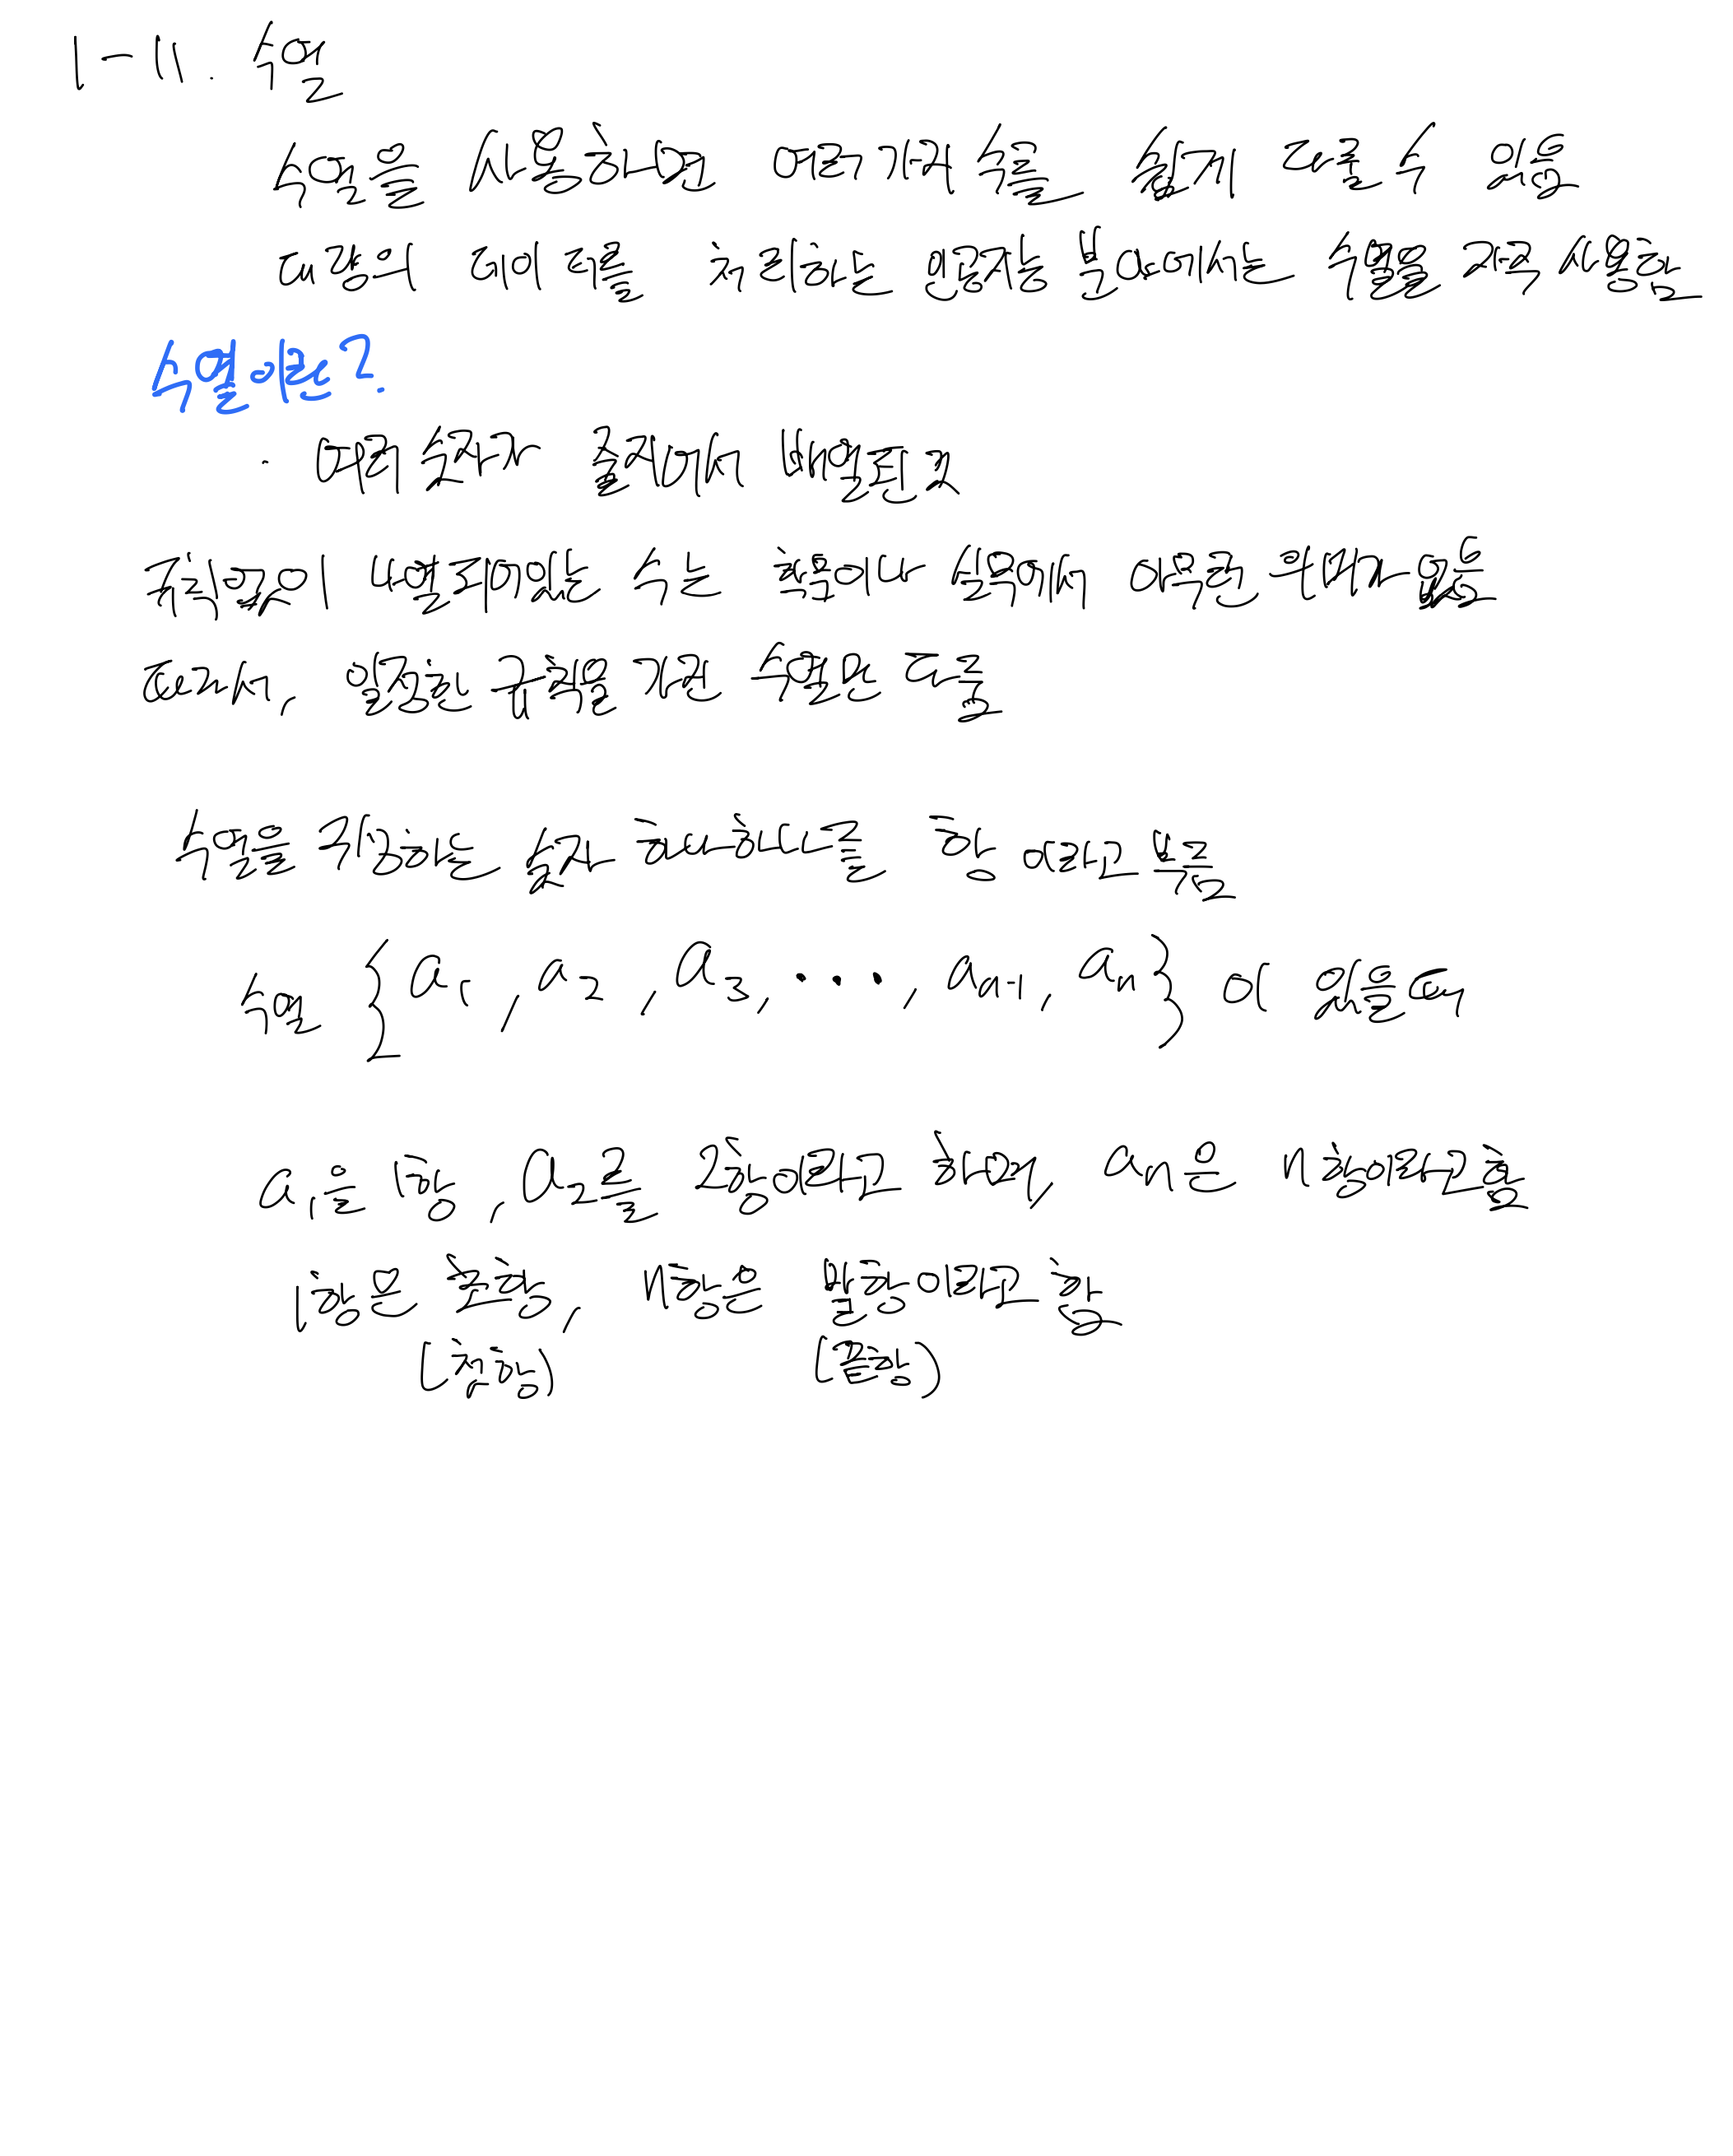 1-11. 수열
수열을 사용하면 여러가지 수를 쉽게 다룰 수 있음
대량의 데이터를 처리하는 인공지능 분야에서는 수열을 자주 사용함
수열이란?
· 여러 숫자가 줄지어서 배열된 것
규칙 없이 나열되어있는 수는 학문이나 실무에서 아무런 의미가 없음
따라서, 일정한 규칙을 가진 수열만 다룸
수열을 구성하는 숫자 하나하나를 항 이라고 부름
수열 {a₁, a₂, a₃, ···, aₙ₋₁, aₙ} 이 있을때
a₁을 1항, a₂를 2항이라고 하며, aₙ은 n항이라고 함
1항은 초항, n항은 말항이라고 함
(첫항) (끝항)